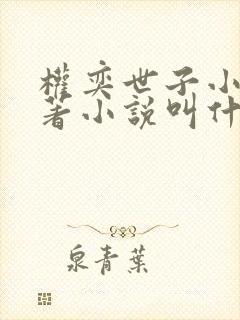 權奕世子小
著小說叫什
泉青葉